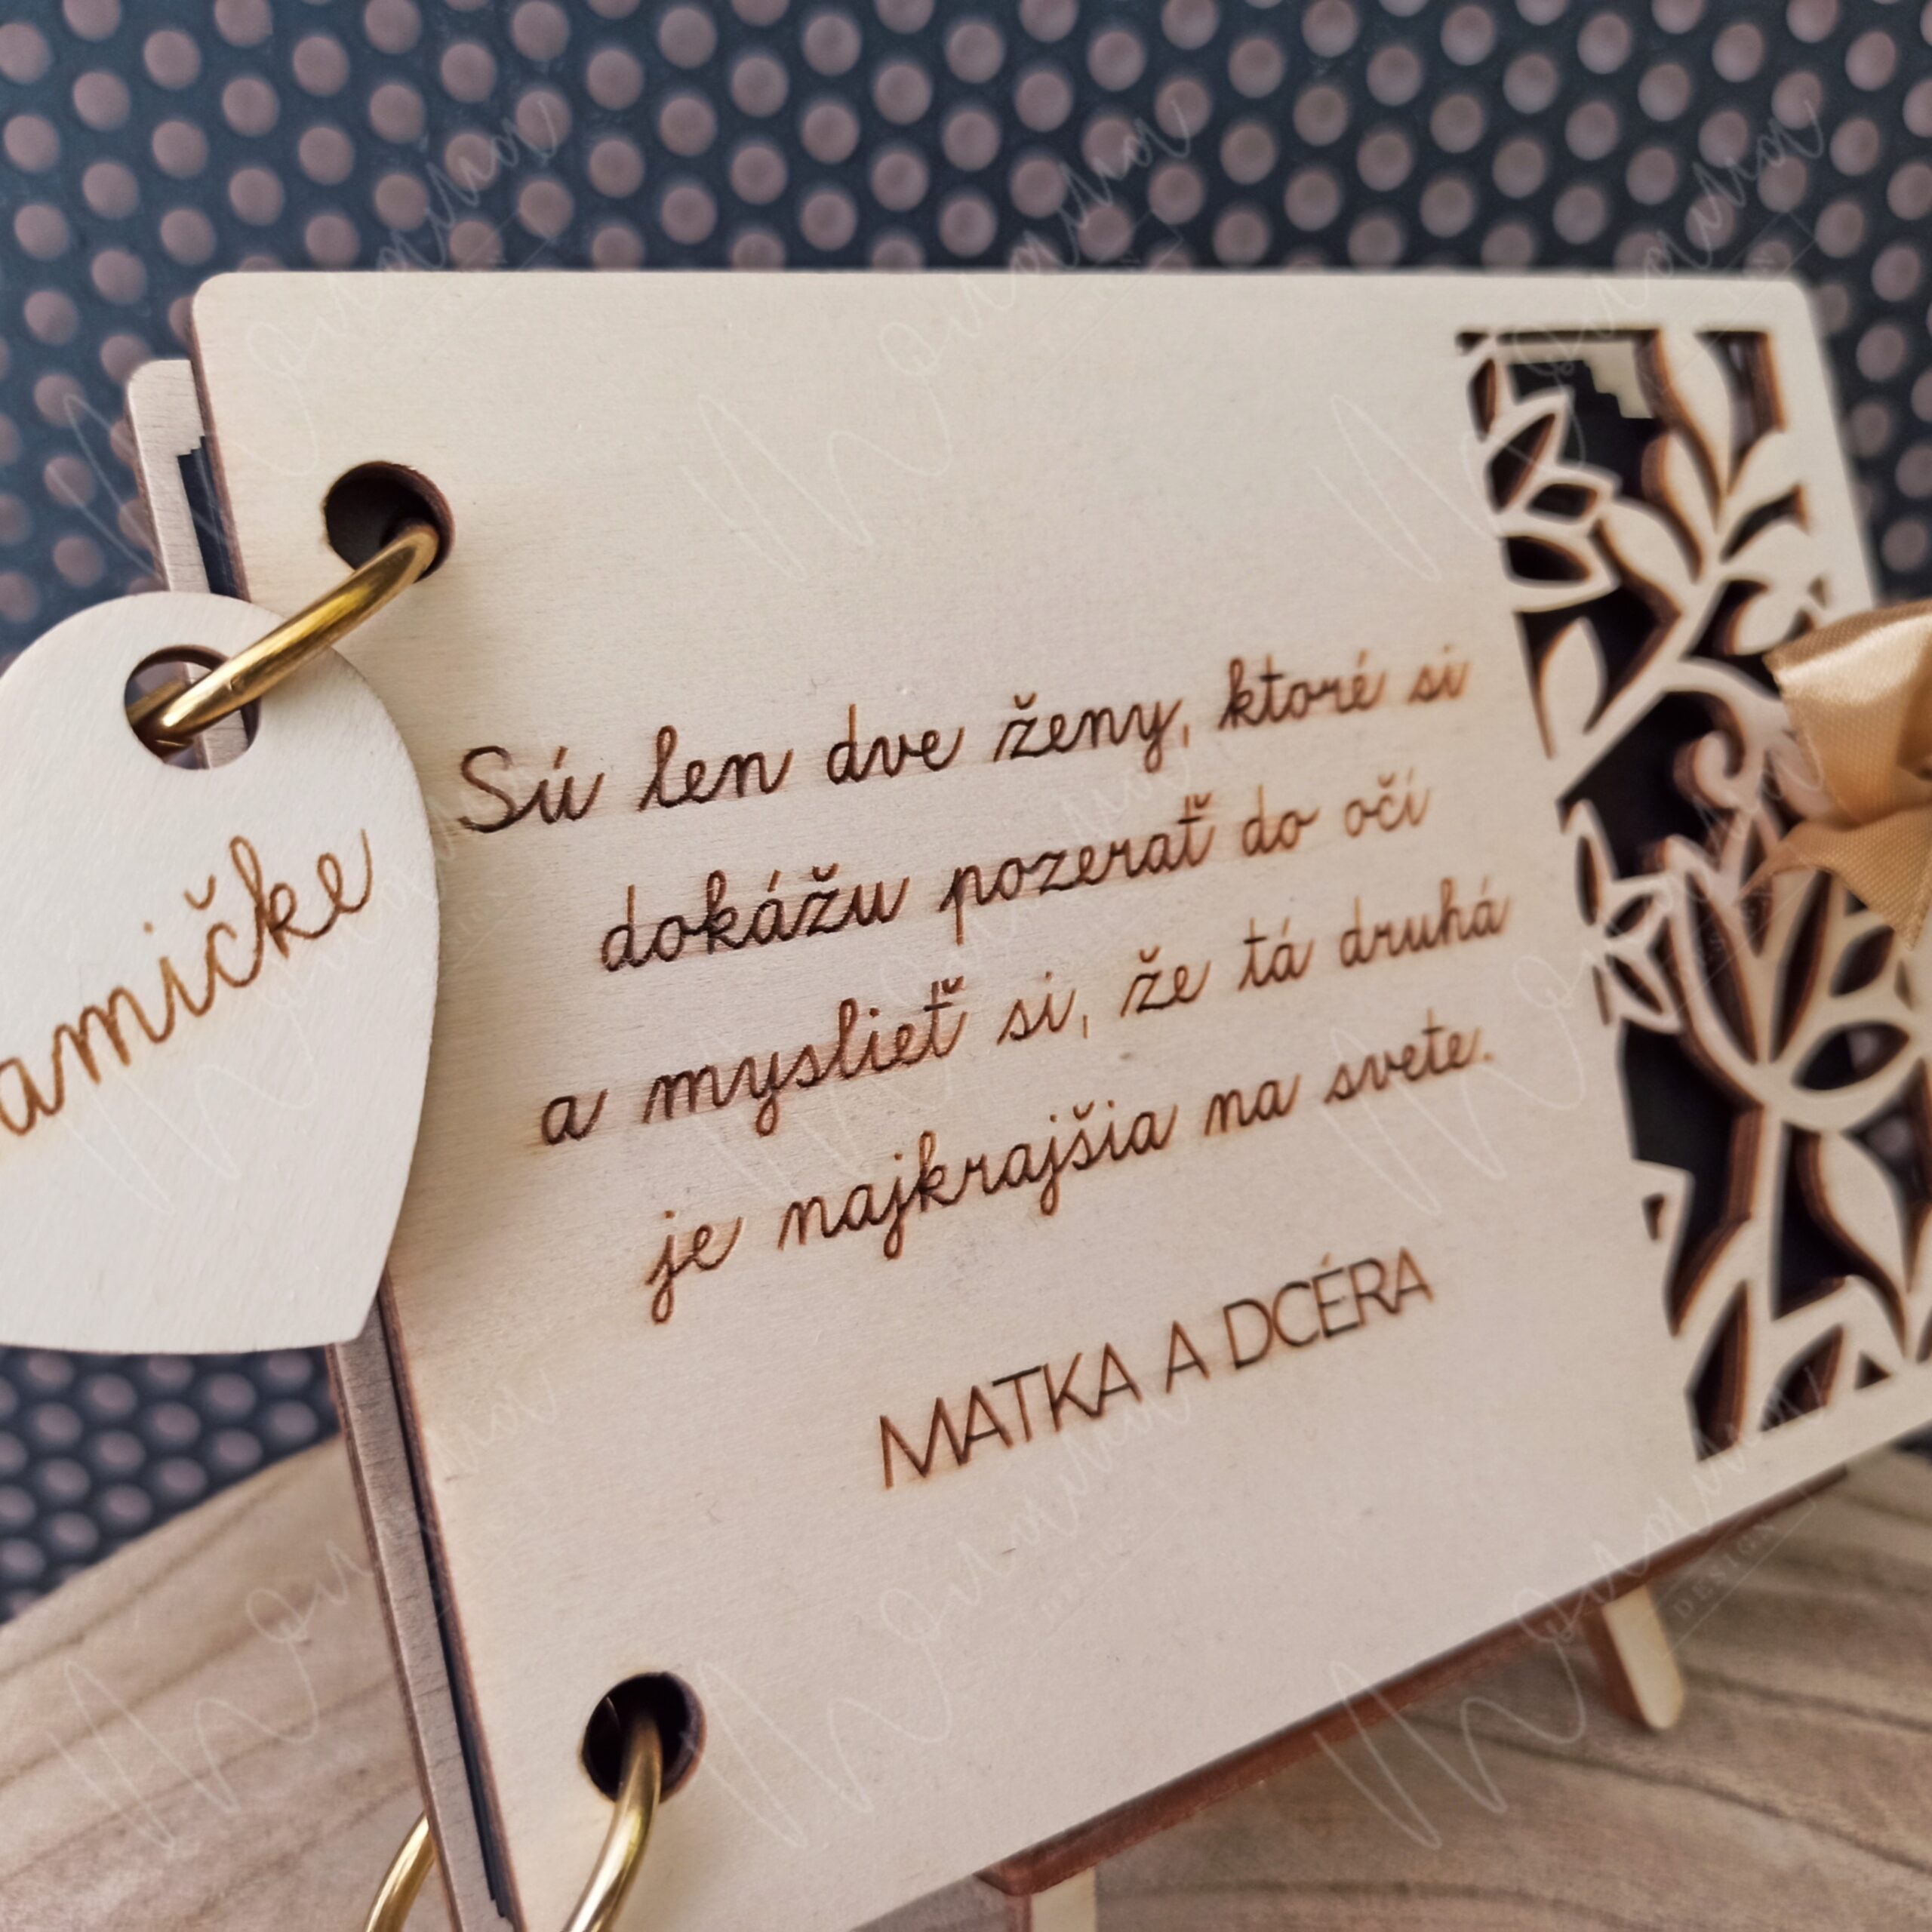 amičke
Sú len dve ženy, ktoré si
dokážu pozerať do očí
a myslieť si, že tá druhá
je najkrajšia na svete.
MATKA A DCÉRA
DESIGN